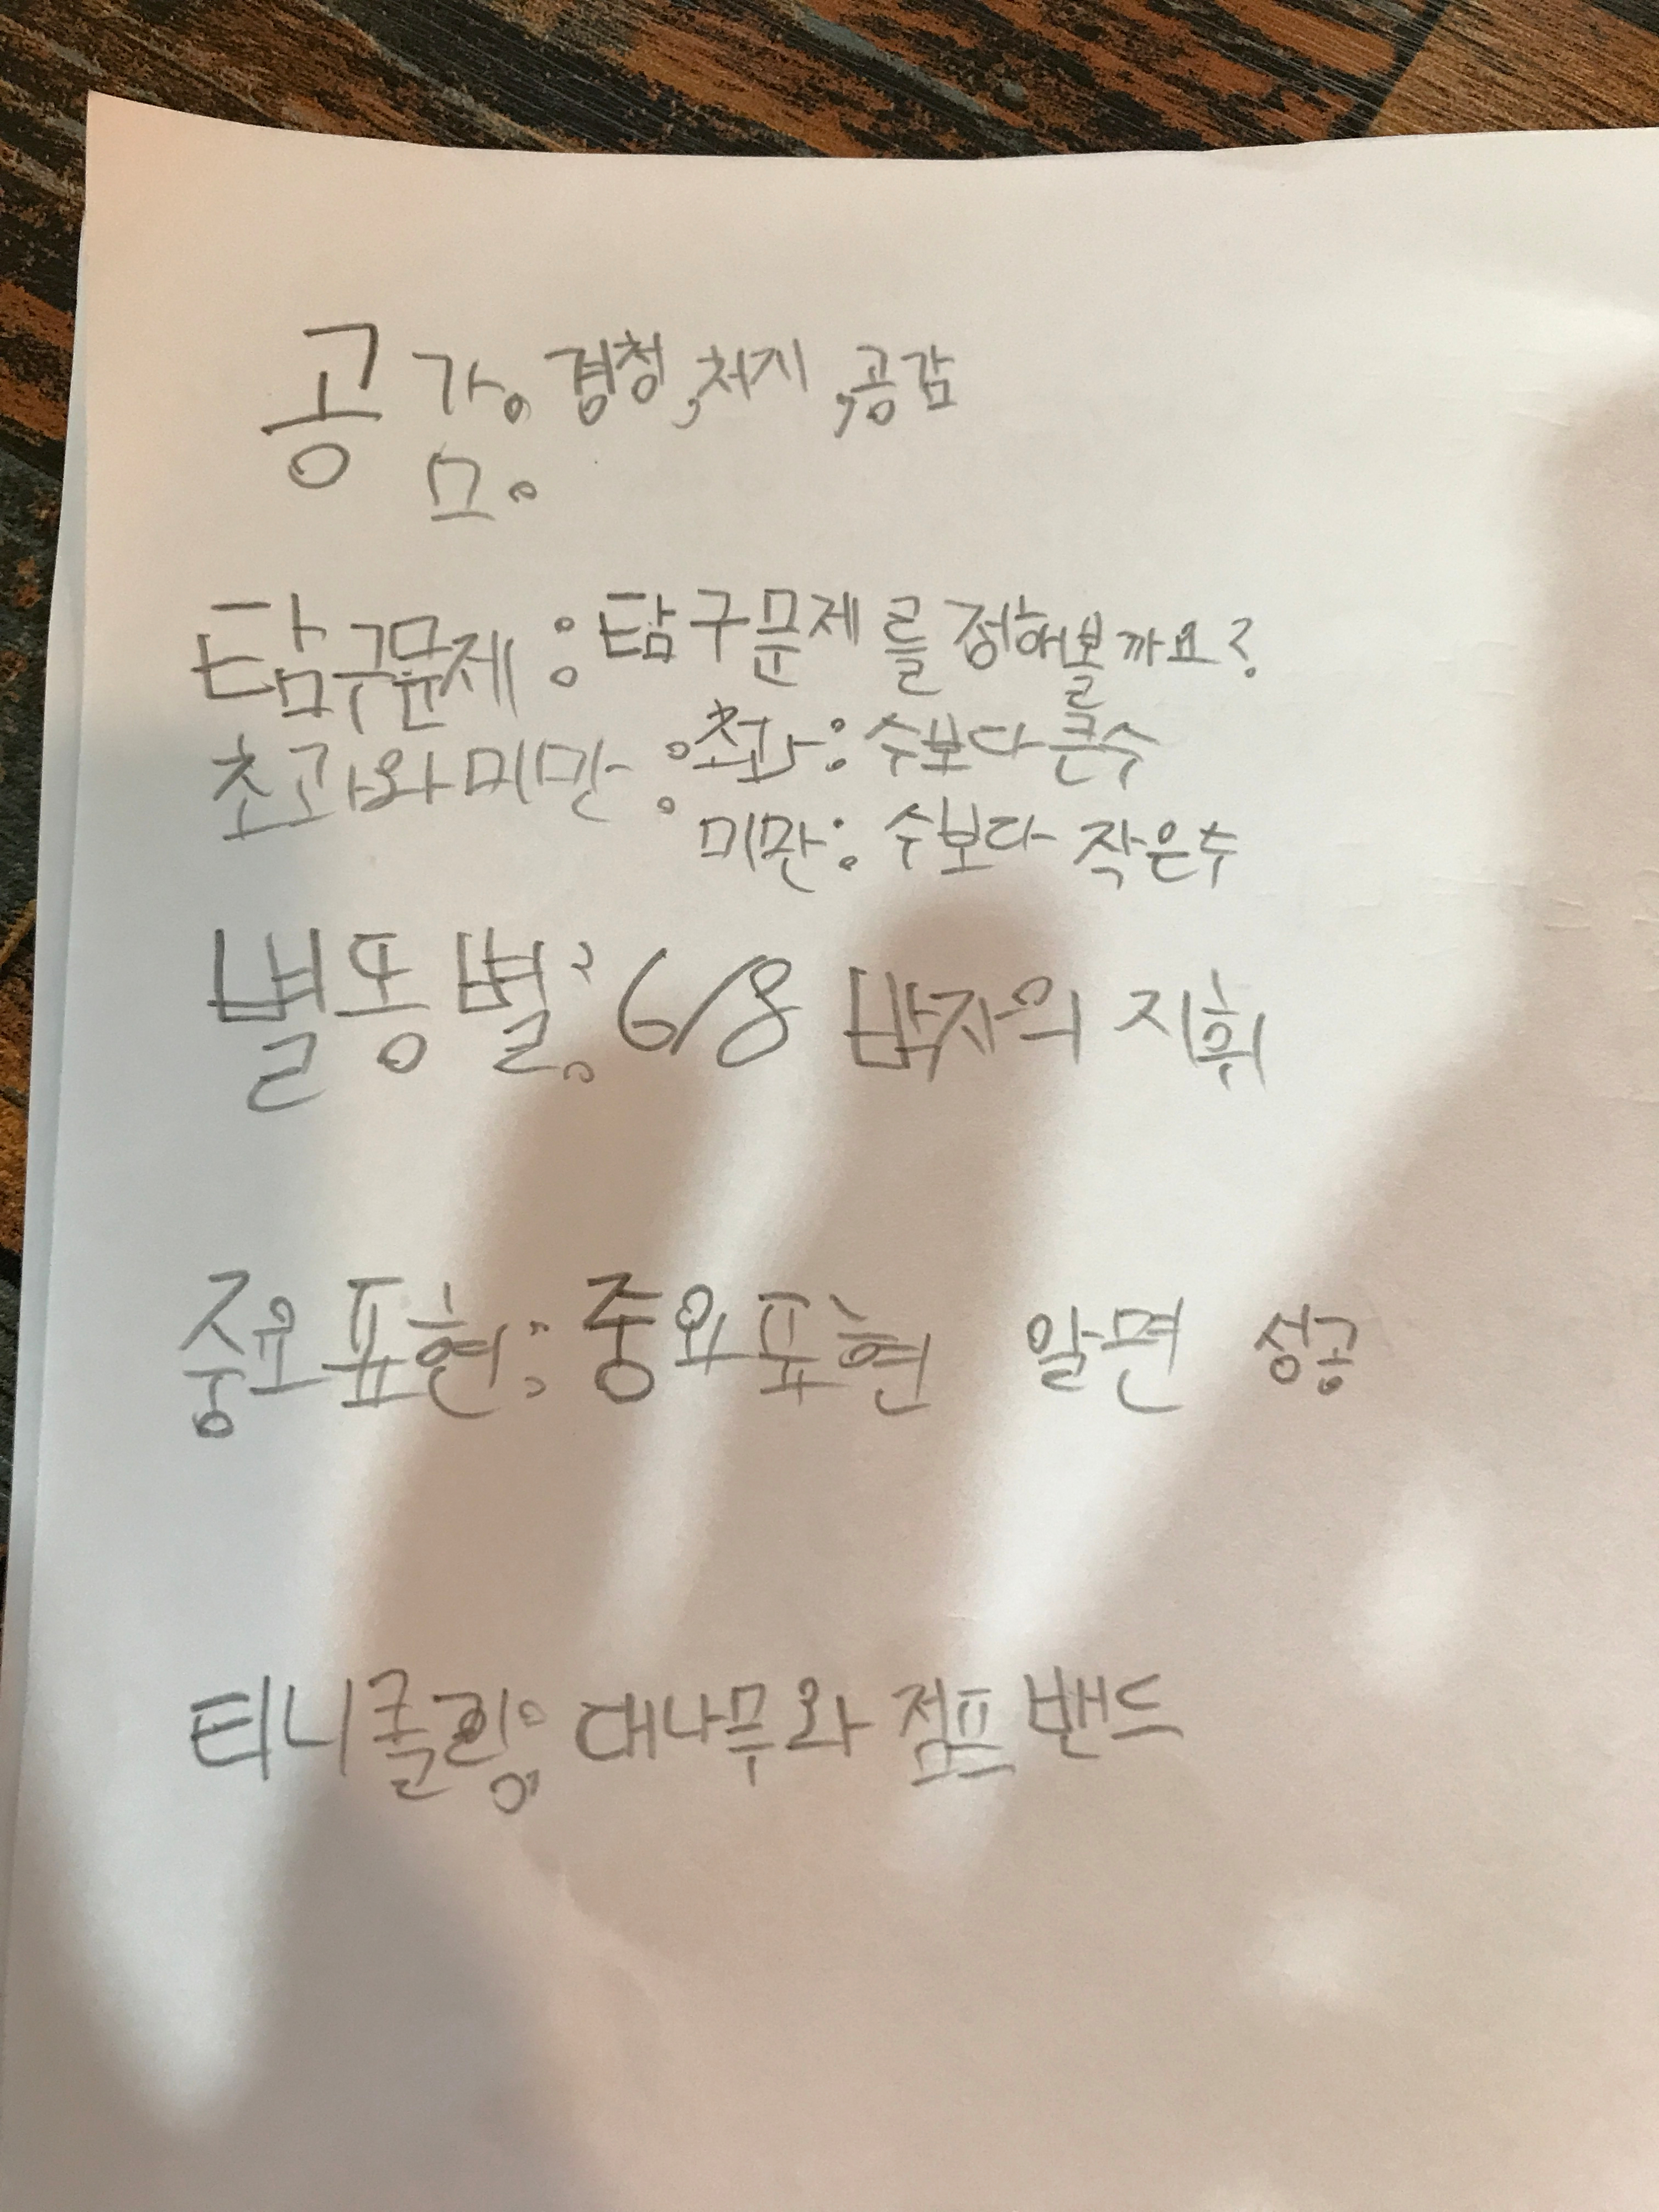 공감: 경청, 처지, 공감
탐구문제: 탐구문제를 정해볼까요?
초과와 미만: 초과: 수보다 큰수
미만: 수보다 작은수
별똥별: 6/8 박자의 지휘
중요표현: 중요표현 알면 성공
티니클링: 대나무와 점프밴드